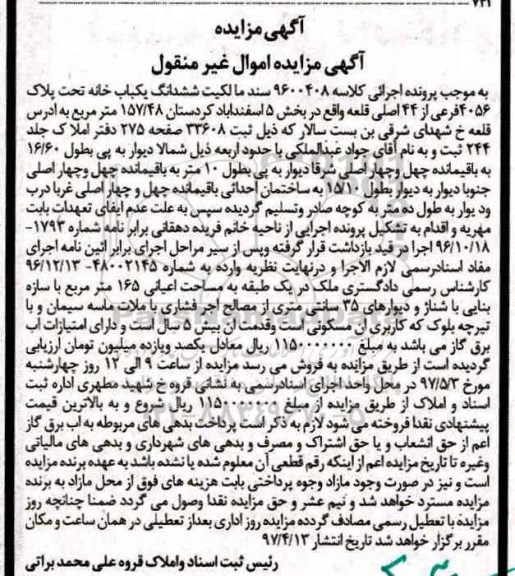 ۷۳۱
آگهی مزایده
آگهی مزایده اموال غیر منقول
به موجب پرونده اجرائی کلاسه ۹۶۰۰۴۰۸ سند مالکیت ششدانگ یکباب خانه تحت پلاک
۴۰۵۶فرعی از ۴۴ اصلی قلعه واقع در بخش ۵ اسفنداباد کردستان ۱۵۷/۴۸ متر مربع به ادرس
قلعه خ شهدای شرقی بن بست سالار که ذیل ثبت ۳۳۶۰۸ صفحه ۲۷۵ دفتر املاک جلد
۲۴۴ ثبت و به نام آقای جواد عبدالملکی با حدود اربعه ذیل شمالا دیوار به پی بطول ۱۶/۶۰
به باقیمانده چهل وچهار اصلی شرقا دیوار به پی بطول ۱۰ متر به باقیمانده چهل وچهار اصلی
جنوبا دیوار به دیوار بطول ۱۵/۱۰ به ساختمان احداثی باقیمانده چهل و چهار اصلی غربا درب
ود یوار به طول ده متر به کوچه صادر وتسلیم گردیده سپس به علت عدم ایفای تعهدات بابت
مهریه و اقدام به تشکیل پرونده اجرایی از ناحیه خانم فریده دهقانی برابر نامه شماره ۱۷۹۳-
۹۶/۱۰/۱۸ اجرا در قید بازداشت قرار گرفته وپس از سیر مراحل اجرای برابر ائین نامه اجرای
مفاد اسنادرسمی لازم الاجرا و درنهایت نظریه وارده به شماره ۴۸۰۰۲۱۴۵-۹۶/۱۲/۱۳
کارشناس رسمی دادگستری ملک در یک طبقه به مساحت اعیانی ۱۶۵ متر مربع با سازه
بنایی با شناژ و دیوارهای ۳۵ سانتی متری از مصالح اجر فشاری با ملات ماسه سیمان و با
تیرچه بلوک که کاربری آن مسکونی است وقدمت آن بیش ۵ سال است و دارای امتیازات آب
برق گاز می باشد به مبلغ ۱۱۵۰۰۰۰۰۰۰ ریال معادل یکصد وپانزده میلیون تومان ارزیابی
گردیده است از طریق مزایده به فروش می رسد مزایده از ساعت ۹ الی ۱۲ روز چهارشنبه
مورخ ۹۷/۵/۳ در محل واحد اجرای اسنادرسمی به نشانی قروه خ شهید مطهری اداره ثبت
اسناد و املاک از طریق مزایده از مبلغ ۱۱۵۰۰۰۰۰۰۰ ریال شروع و به بالاترین قیمت
پیشنهادی نقدا فروخته می شود لازم به ذکر است پرداخت بدهی های مربوطه به اب برق گاز
اعم از حق انشعاب و یا حق اشتراک و مصرف و بدهی های شهرداری و بدهی های مالیاتی
وغیره تا تاریخ مزایده اعم از اینکه رقم قطعی آن معلوم شده یا نشده باشد به عهده برنده مزایده
است و نیز در صورت وجود مازاد وجوه پرداختی بابت هزینه های فوق از محل مازاد به برنده
مزایده مسترد خواهد شد و نیم عشر و حق مزایده نقدا وصول می گردد ضمنا چنانچه روز
مزایده با تعطیل رسمی مصادف گردده مزایده روز اداری بعداز تعطیلی در همان ساعت و مکان
مقرر برگزار خواهد شد تاریخ انتشار ۹۷/۴/۱۳
رئیس ثبت اسناد واملاک قروه علی محمد براتی